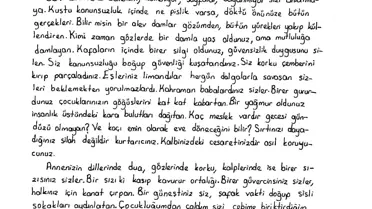 ya. Kustu kanunsuzluk içinde ne pislik varsa, döktü önünüze bütün
gerçekleri. Bilir misin bir alev damlar gözümden, bütün yürekleri yakıp kül-
lendiren. Kimi zaman gözlerde bir damla yaş oldunuz, ama mutluluğa
damlayan. Kafaların içinde birer silgi oldunuz, güvensizlik duygusunu si-
len. Siz kanunsuzluğu boğup güvenliği kuşattınız. Siz korku çemberini
kırıp parçaladınız. Eşleriniz limandılar hergün dalgalarla savaşan siz-
leri beklemekten yorulmazlardı. Kahraman babalardınız sizler. Birer gurur-
dunuz çocuklarınızın göğüslerini kat kat kabartan. Bir yağmur oldunuz
insanlık üstündeki kara bulutları dağıtan. Kaç meslek vardır gecesi gün-
düzü olmayan? Ve kaçı emin olarak eve döneceğini bilir? Sırtınızı daya-
dığınız silah değildir kurtarıcınız. Kalbinizdeki cesaretinizdir asıl koruyu-
cunuz.
Annenizin dillerinde dua, gözlerinde korku, kalplerinde ise birer sı-
zısınız sizler. Bir sızı ki kasıp kavurur ortalığı. Birer güvercinsiniz sizler,
halkınız için kanat çırpan. Bir güneştiniz siz, şafak vakti doğup sisli
sokakları aydınlatan. Çocukluğumdan çaldım sizi cebime biriktirdiğim